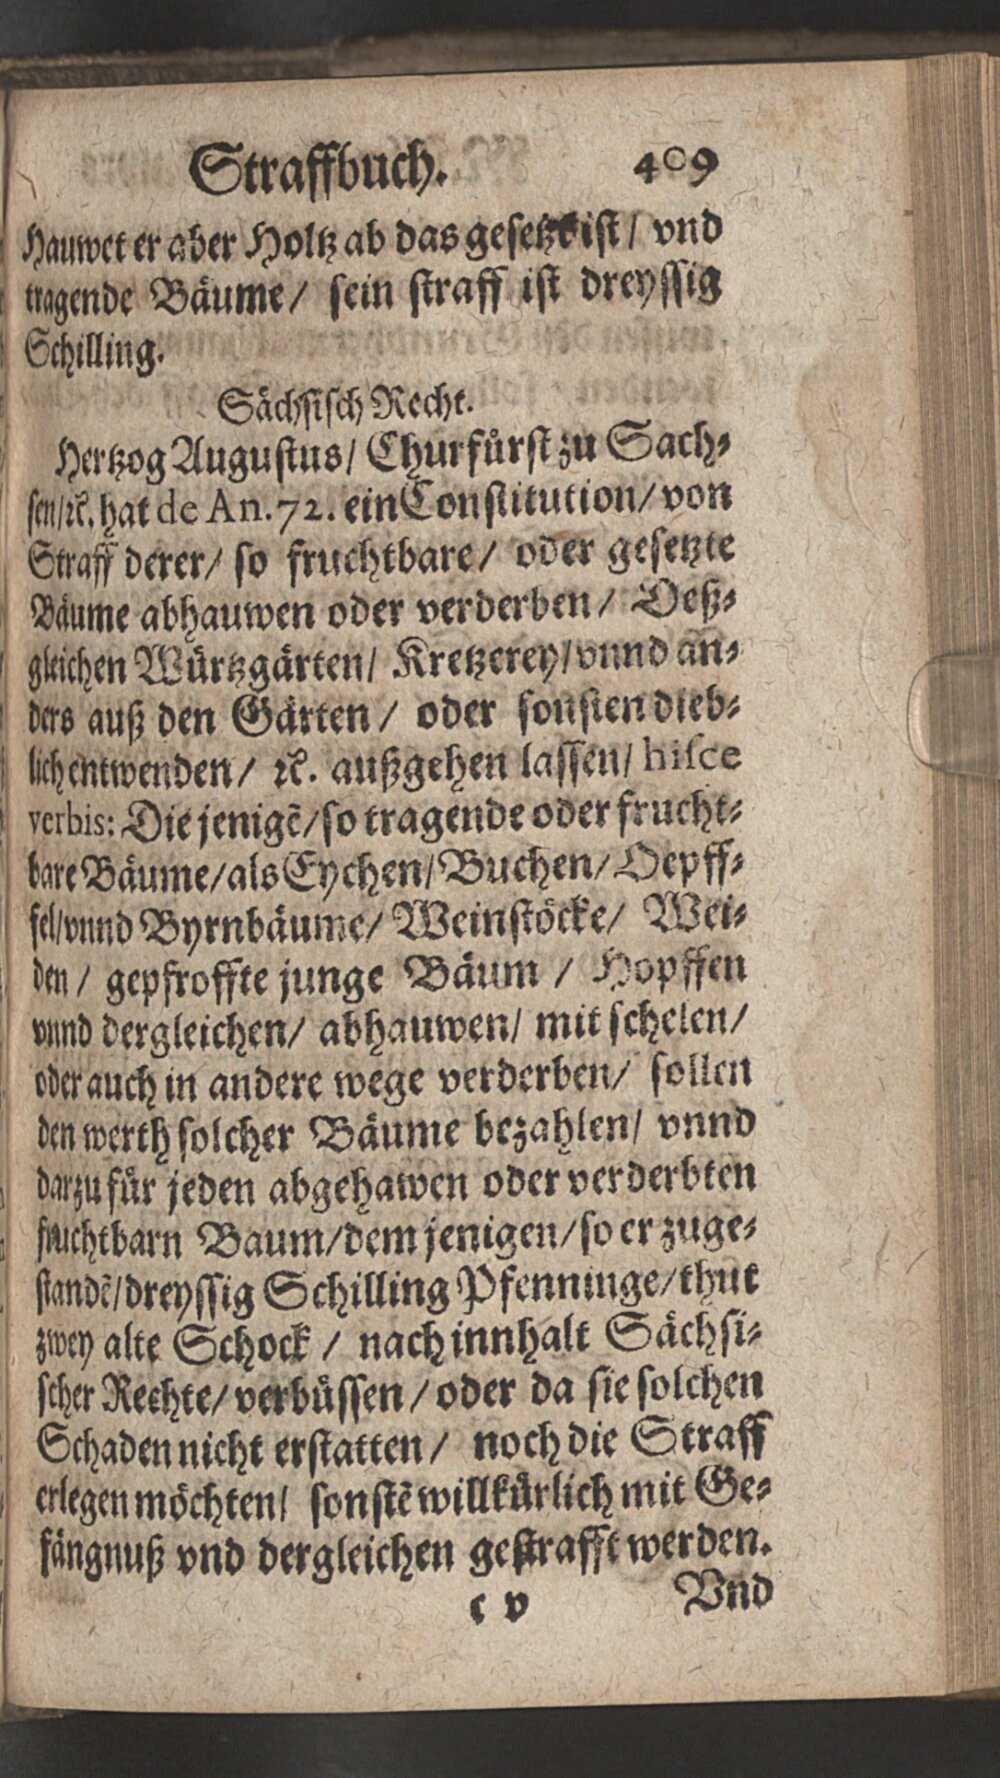 Straffbuch. 409
Hauwet er aber Holtz ab das gesetzt ist / vnd
tragende Bäume / sein straff ist dreyssig
Schilling.
Sächsisch Recht.
Hertzog Augustus / Churfürst zu Sach-
sen / ꝛc. hat de An. 72. ein Constitution / von
Straff derer / so fruchtbare / oder gesetzte
Bäume abhauwen oder verderben / Deß-
gleichen Würtzgärten / Kretzerey / vnnd an-
ders auß den Gärten / oder sonsten dieb-
lich entwenden / ꝛc. außgehen lassen / hisce
verbis: Die jenigẽ / so tragende oder frucht-
bare Bäume / als Eychen / Buchen / Oepff-
fel / vnnd Byrnbäume / Weinstöcke / Wei-
den / gepfroffte junge Bäum / Hopffen
vnnd dergleichen / abhauwen / mit schelen /
oder auch in andere wege verderben / sollen
den werth solcher Bäume bezahlen / vnnd
darzu für jeden abgehawen oder verderbten
fruchtbarn Baum / dem jenigen / so er zuge-
standẽ / dreyssig Schilling Pfenninge / thut
zwey alte Schock / nach innhalt Sächsi-
scher Rechte / verbüssen / oder da sie solchen
Schaden nicht erstatten / noch die Straff
erlegen möchten / sonstẽ willkürlich mit Ge-
fängnuß vnd dergleichen gestrafft werden.
c v Vnd